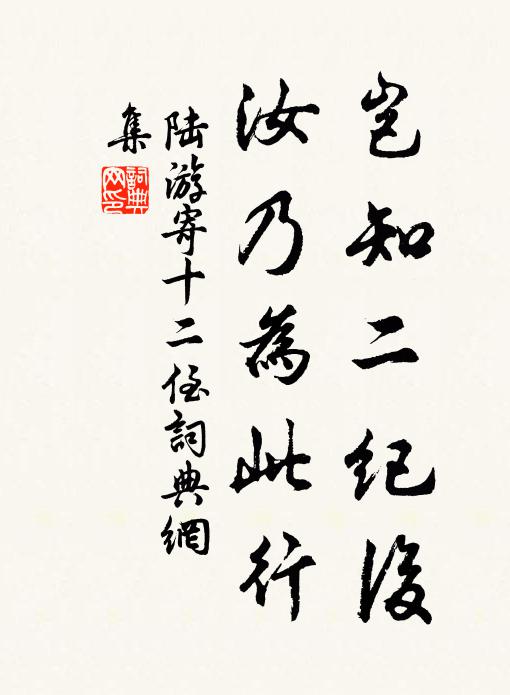 豈知二紀後
汝乃為此行
陸游寄十二侄詞典網
集
詞典網印